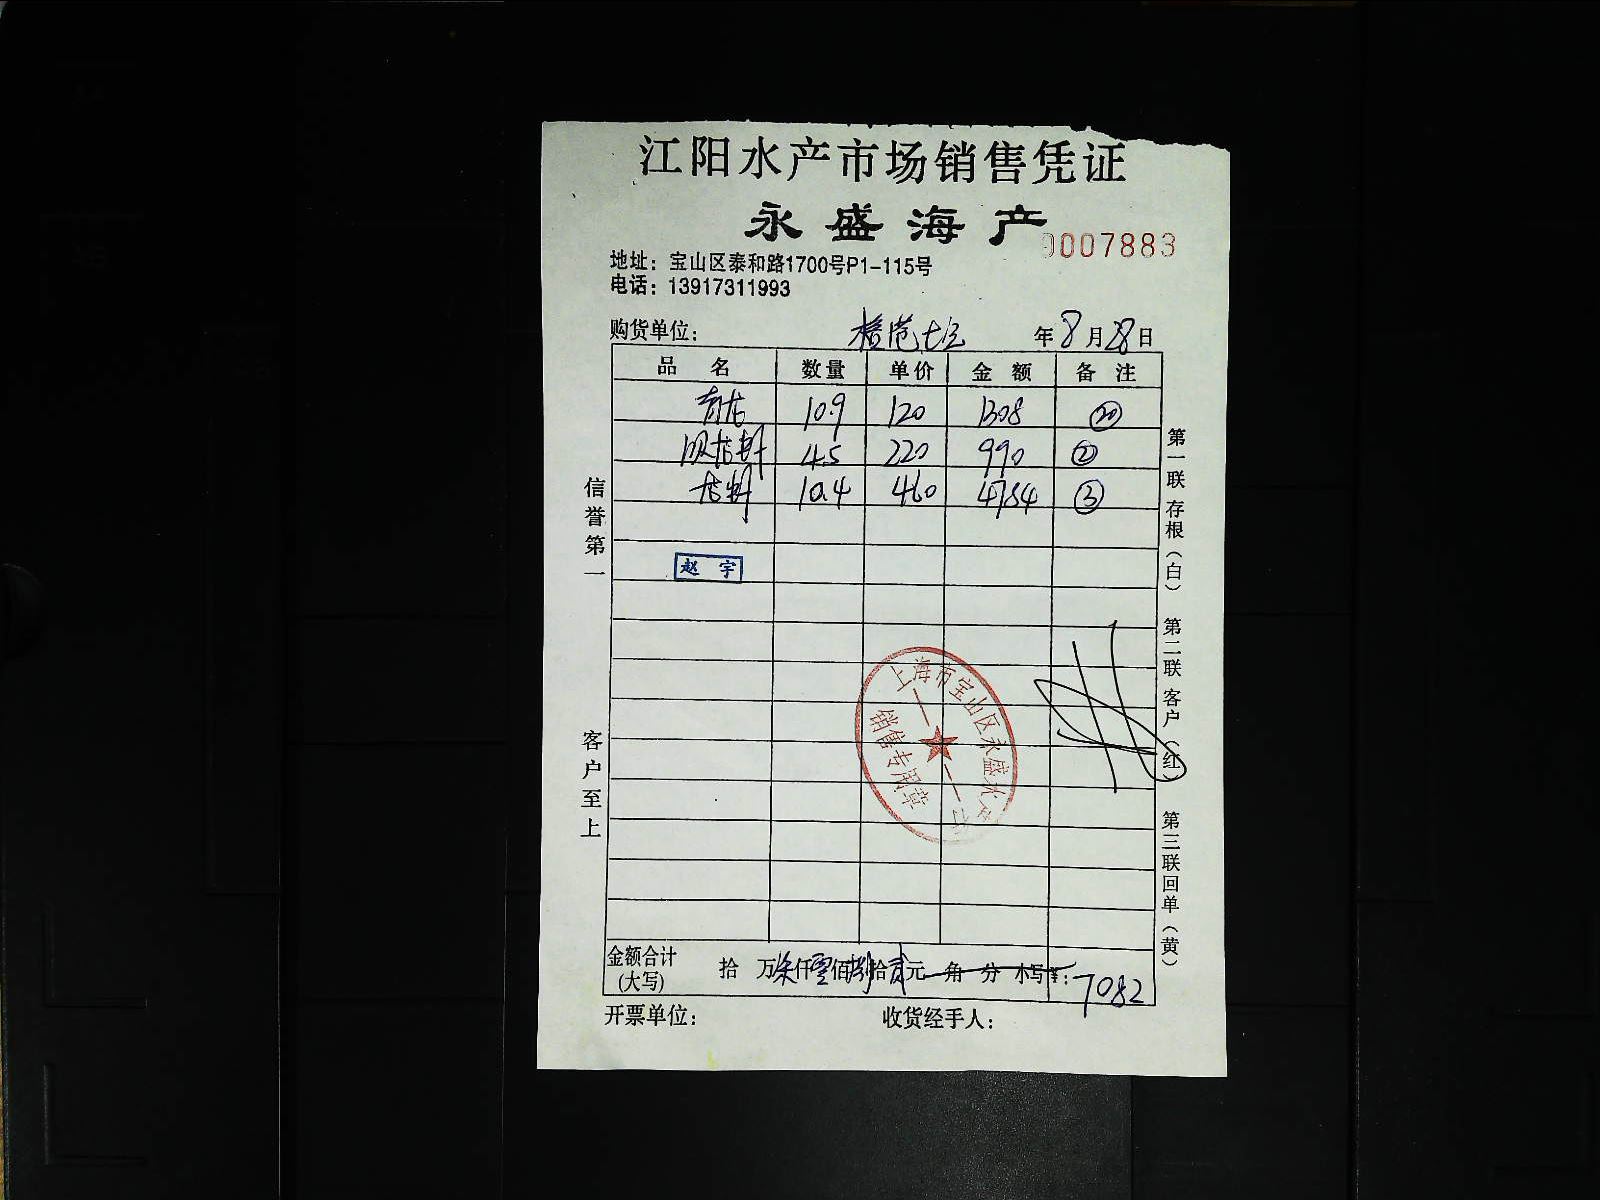 江阳水产市场销售凭证
永盛海产
0007883
地址：宝山区泰和路1700号P1-115号
电话：13917311993
购货单位： 年8月28日
品名 数量 单价 金额 备注
青古 10.9 120 1308 20
10.4 460 4784 3
4.5 220 990 2
信誉第一
客户至上
赵宇
上海市宝山区永盛水产
销售专用章
第一联存根（白） 第二联客户（红） 第三联回单（黄）
金额合计（大写） 拾万柒仟 佰捌拾贰元角分 小写¥：7082
开票单位： 收货经手人：